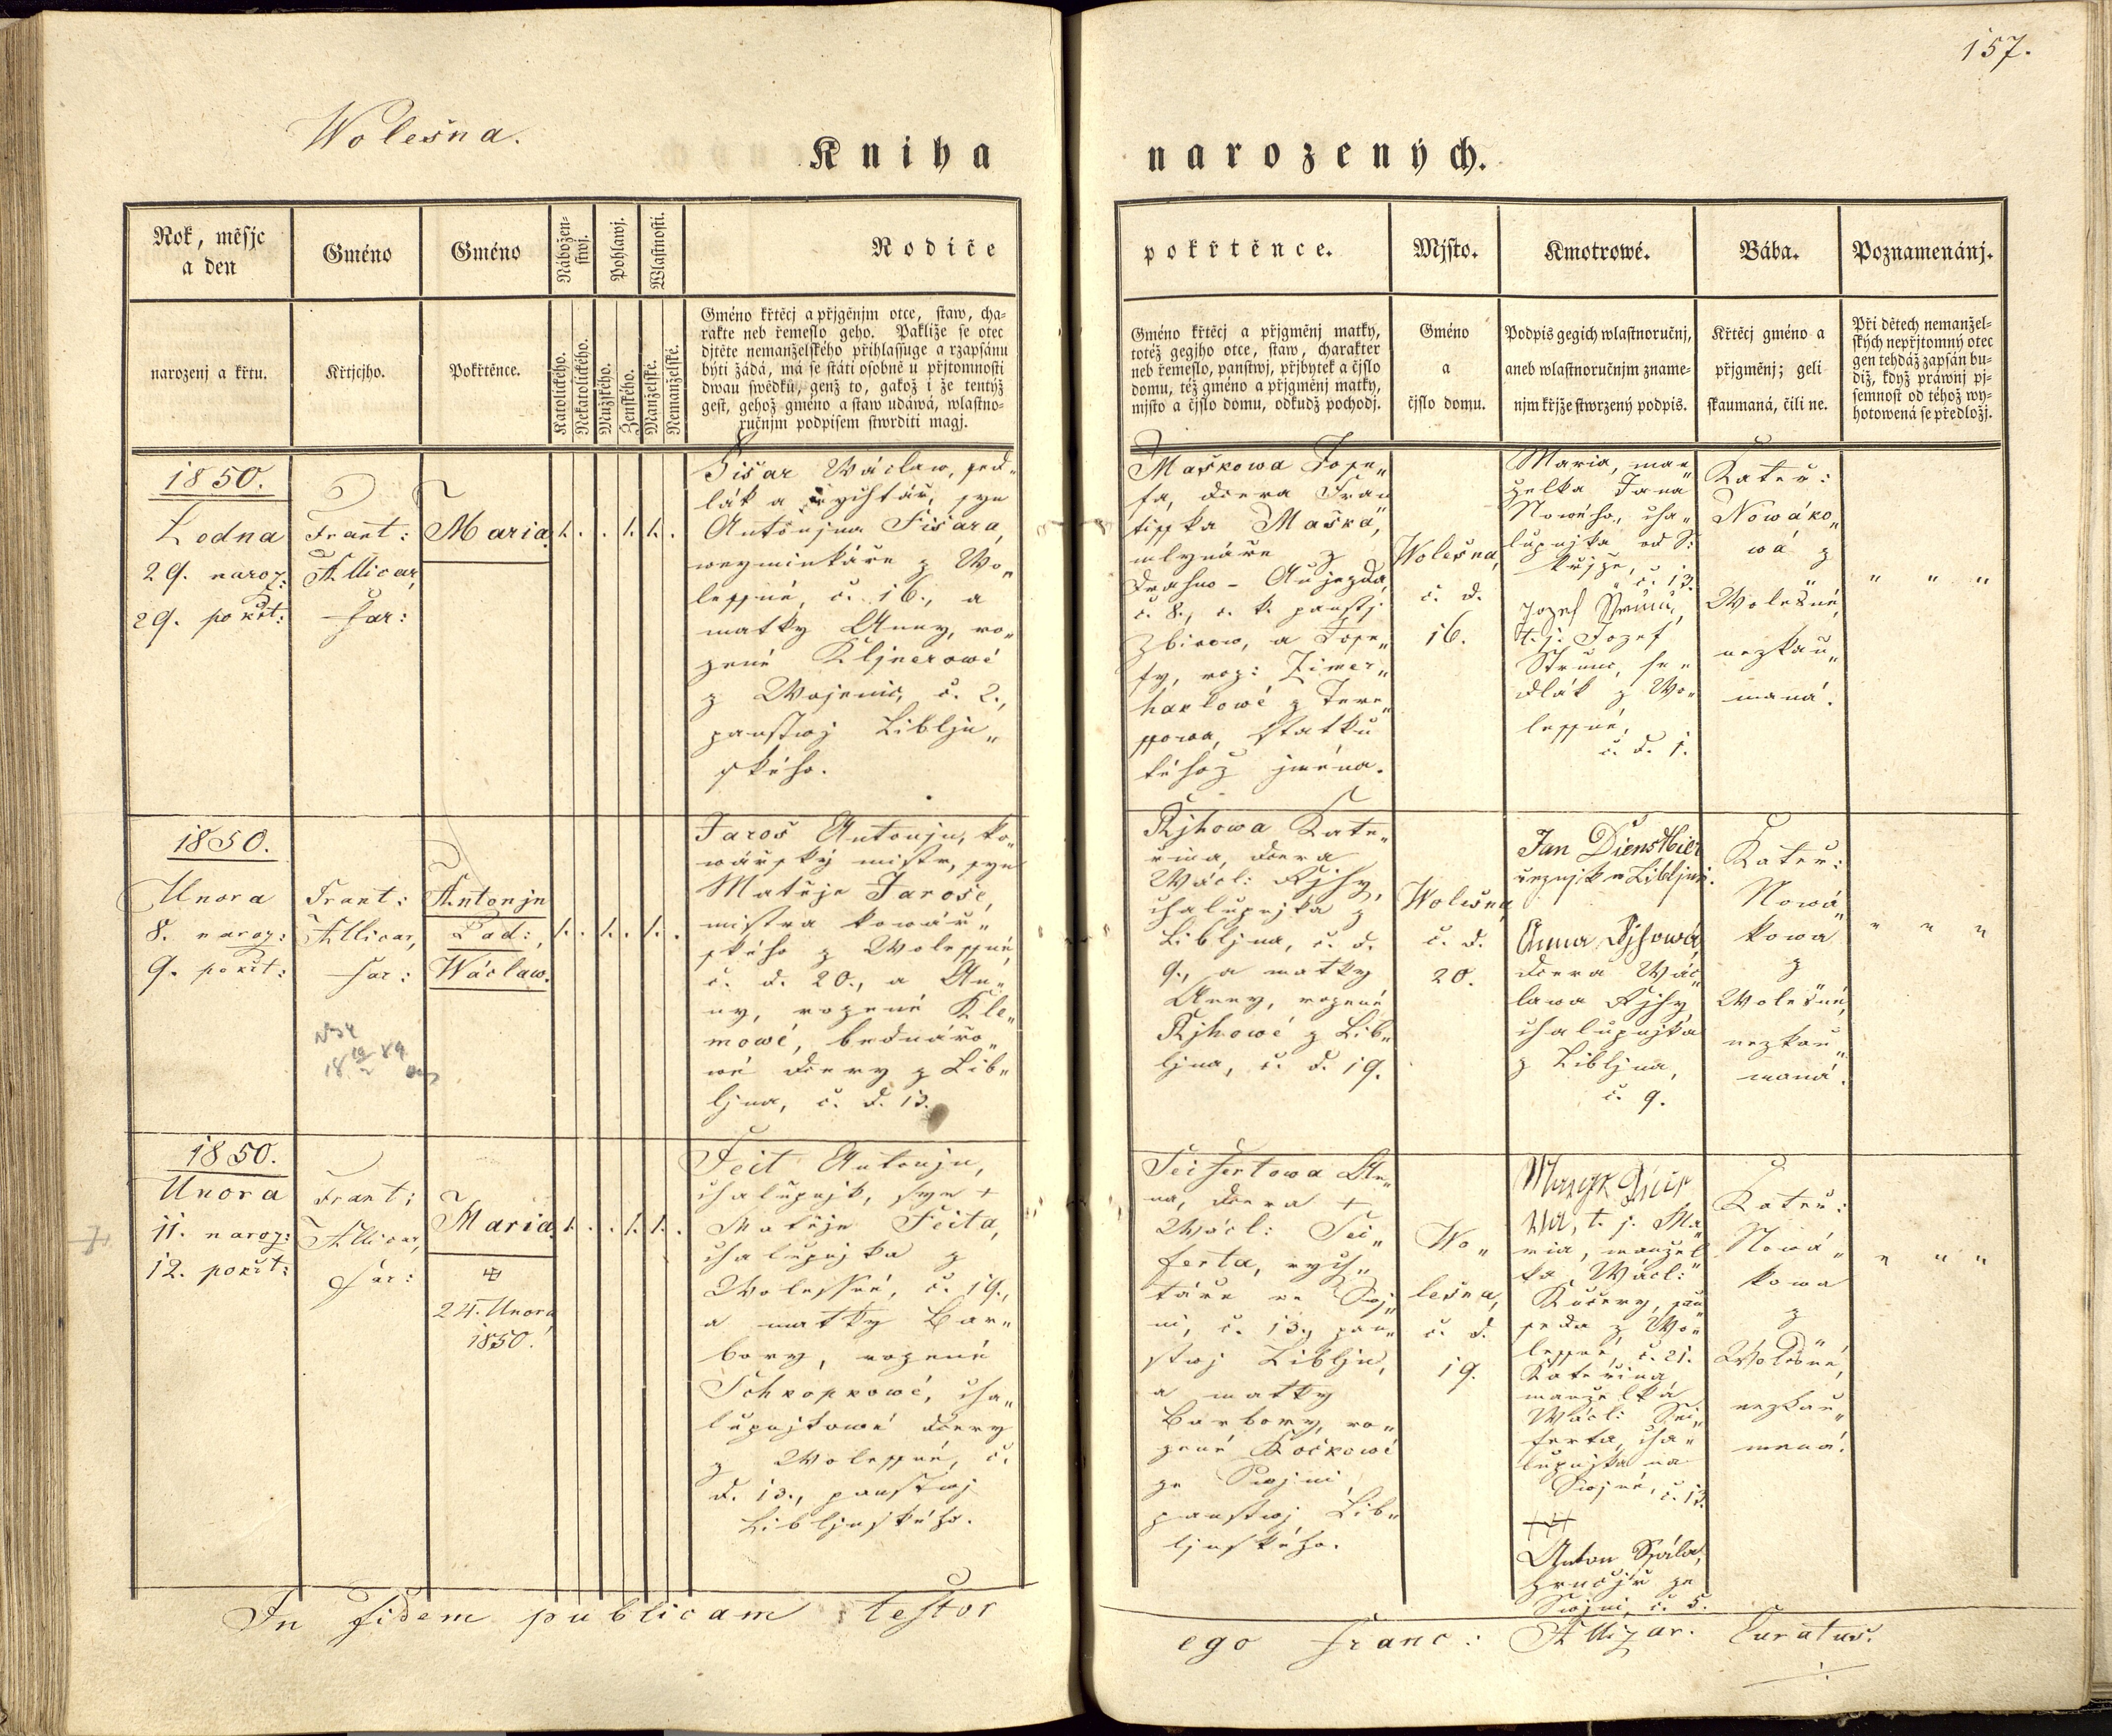 157.
Wolešna.
Kniha narozených.
Rok, měsjc
a den
narozenj a křtu.
Gméno
Křtjcjho.
Gméno
Pokřtěnce.
Nábožen-
stwj.
Katolického.
Nekatolického.
Pohlawj.
Mužského.
Ženského.
Wlastnosti.
Manželské.
Nemanželské.
Rodiče
Gméno křtěcj a přjgěnjm otce, staw, cha-
rakte neb řemeslo geho. Pakliže se otec
djtěte nemanželského přihlassuge a rzapsánu
býti žádá, má se státi osobně u přjtomnosti
dwau swědků, genž to, gakož i že tentýž
gest, gehož gméno a staw udáwá, wlastno-
ručnjm podpisem stwrditi magj.
pokřtěnce.
Gméno křtěcj a přjgměnj matky,
totéž gegjho otce, staw, charakter
neb řemeslo, panstwj, přjbytek a čjslo
domu, též gméno a přjgměnj matky,
mjsto a čjslo domu, odkudž pochodj.
Mjsto.
Gméno
a
čjslo domu.
Kmotrowé.
Podpis gegich wlastnoručnj,
aneb wlastnoručnjm zname-
njm křjže stwrzený podpis.
Bába.
Křtěcj gméno a
přjgměnj; geli
skaumaná, čili ne.
Poznamenánj.
Při dětech nemanžel-
ských nepřjtomný otec
gen tehdáž zapsán bu-
diž, když práwnj pj-
semnost od téhož wy-
hotowená se předložj.
1850.
Ledna
29. naroz:
29. pokřt:
Frant:
Allicar,
far:
Maria.
1. . . 1. 1. .
Fišar Wáclaw, sed„
lák a rychtář, syn
Antonjna Fišara,
weyminkáře z Wo„
lessné, č. 16., a
matky Anny, ro„
zené Kljnerowé
z Wojenic, č. 2.,
panstwj Libljn„
ského.
Maškowa Jose„
fa, dcera Fran
tisska Maška,
mlynáře z
Drahno-Aujezda,
č. 8., c. k. panstj.
Zbirow, a Jose„
fy, roz: Zimer„
haklowé z Tere„
ssowa, statku
téhož jména.
Wolešna,
č. d.
16.
Maria, man„
želka Jana
Nowého, cha„
lupnjka od S:
Křjže, č. 13.
Jozef Strunc,
t. j. Jozef
Strunc, se„
dlák z Wo„
lessné,
č. d. 1.
Kateř:
Nowáko„
wá z
Wolešné,
nezkau„
maná.
„ „ „
1850.
Unora
8. naroz:
9. pokřt:
Frant:
Allicar,
far:
Antonjn
Pad:,
Wáclaw.
1. . 1. . 1. .
Jaroš Antonjn, ko„
wářský mistr, syn
Matěje Jaroše,
mistra kowář„
ského z Wolessné,
č. d. 20., a An„
ny, rozené Kle„
mowé, bednářo„
wé dcery z Lib„
ljna, č. d. 13.
Řjhowa Kate„
řina, dcera
Wácl: Řjhy,
chalupnjka z
Libljna, č. d.
9., a matky
Anny, rozené
Řjhowé z Lib„
ljna, č. d. 19.
Wolešna,
č. d.
20.
Jan Diensthier
řeznjk w Libljně.
Anna Řjhowá,
dcera Wác„
lawa Řjhy
chalupnjka
z Libljna,
č. 9.
Kateř:
Nowá„
kowa
z
Wolešné,
nezkau„
maná.
„ „ „
1850.
Unora
11. naroz:
12. pokřt:
Frant:
Allicar,
far:
Maria.
24. Unora
1850.
1. . . 1. 1. .
Feit Antonjn,
chalupnjk, syn +
Matěje Feita,
chalupnjka z
Wolessné, č. 19.,
a matky Bar„
bory, rozené
Schkopkowé, cha„
lupnjkowé dcery
z Wolessné, č.
d. 13., panstwj
Libljnského.
Seifertowa An„
na, dcera +
Wácl: Sei„
ferta, rych„
táře ze Swoj„
ni, č. 13., pan„
stwj Libljn,
a matky
Barbory, ro„
zené Kočkowé
ze Swojni,
panstwj Lib„
ljnského.
Wo„
lešna,
č. d.
19.
t. j. Ma
ria, manžel
ka Wácl:
Kučery, sau
seda z Wo„
lessné, č. 21.
Kateřina,
manželka
Wácl: Sei„
ferta, cha„
lupnjka na
Swojné, č. 13.
+++
Anton Spála,
hrnčjř ze
Swojni, č. 5.
Kateř:
Nowá„
kowa
z
Wolešné,
nezkau„
maná.
„ „ „
In fidem publicam testor
ego Franc: Allizar. Curatus.